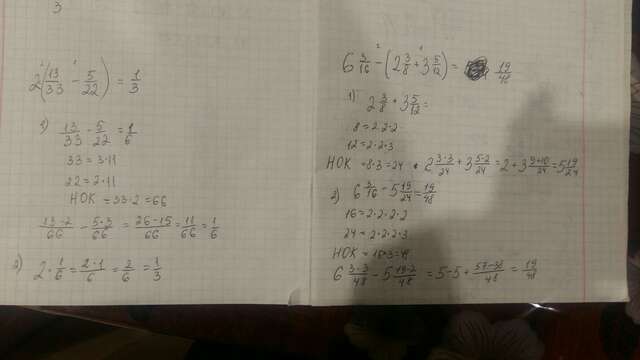 3
2(13/33 - 5/22) = 1/3
1) 13/33 - 5/22 = 1/6
33 = 3·11
22 = 2·11
НОК = 33·2 = 66
13·2/66 - 5·3/66 = 26-15/66 = 11/66 = 1/6
2) 2·1/6 = 2·1/6 = 2/6 = 1/3
6 3/16 - (2 3/8 + 3 5/12) = 19/48
1) 2 3/8 + 3 5/12 =
8 = 2·2·2
12 = 2·2·3
НОК = 8·3 = 24 · 2 3·3/24 + 3 5·2/24 = 2 + 3 9+10/24 = 5 19/24
2) 6 3/16 - 5 19/24 = 19/48
16 = 2·2·2·2
24 = 2·2·2·3
НОК = 16·3 =
6 3·3/48 - 5 19·2/48 = 5-5 + 57-38/48 = 19/48